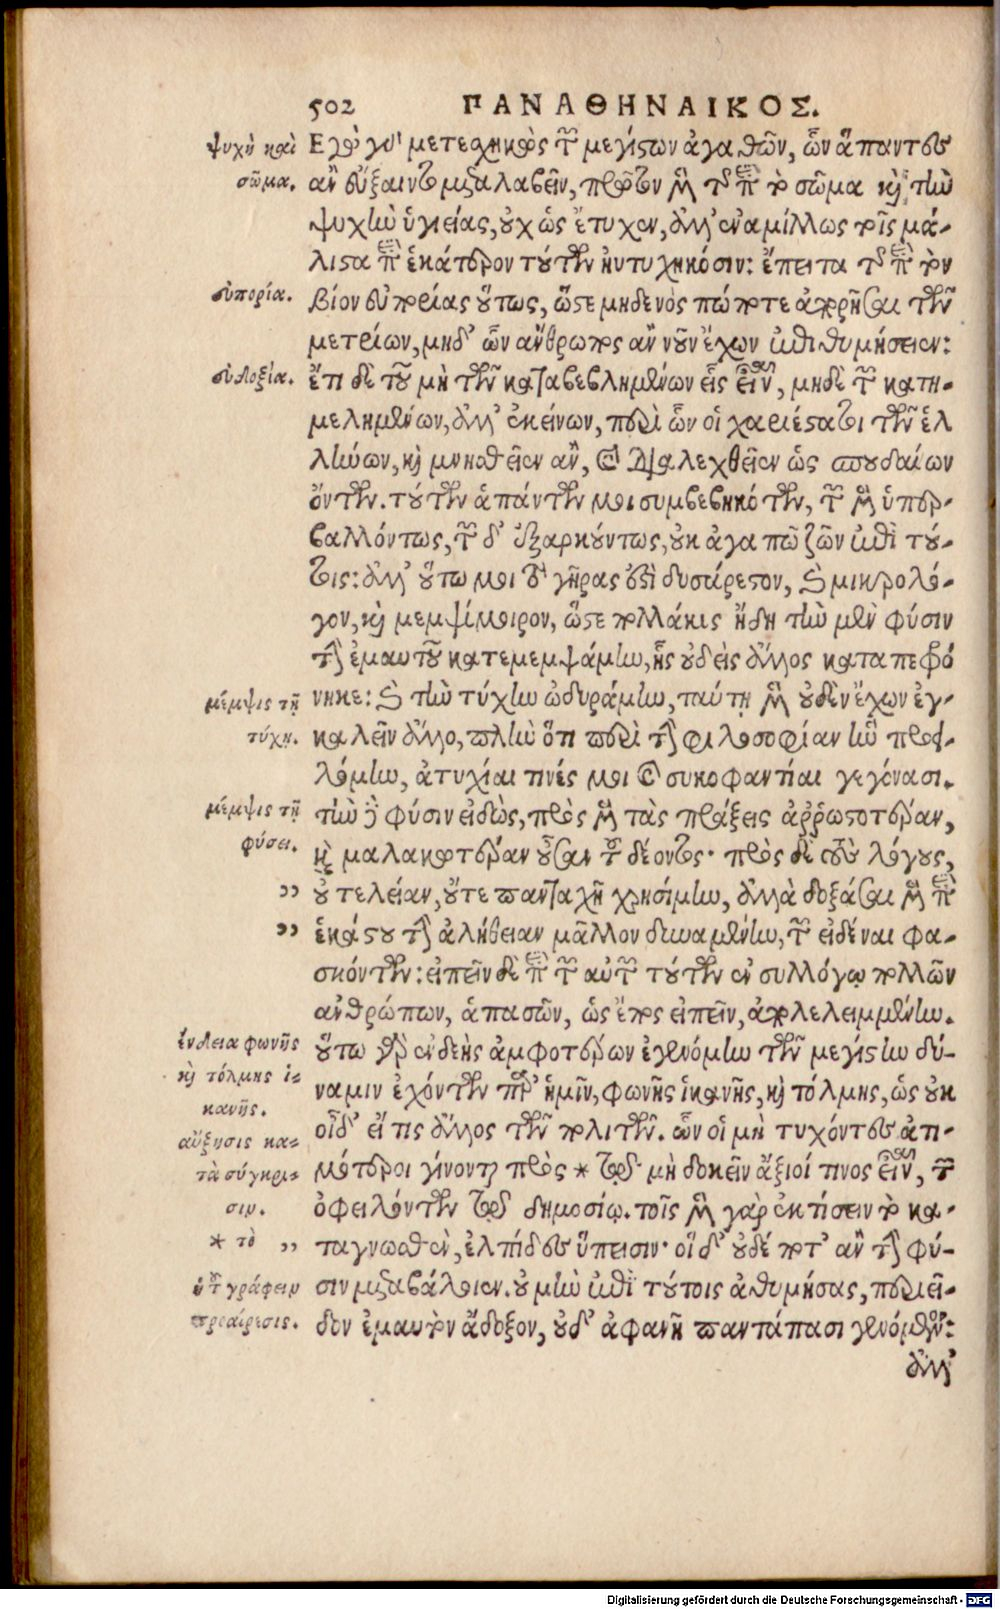 502 ΠΑΝΑΘΗΝΑΙΚΟΣ.
ψυχὴ καὶ
σῶμα.
εὐπορία.
εὐδοξία.
μέμψις τῇ
τύχῃ.
μέμψις τῇ
φύσει.
ἔνδεια φωνῆς
καὶ τόλμης ἱ-
κανῆς.
αὔξησις κα-
τὰ σύγκρι-
σιν.
* τὸ
ἡ τοῦ γράφειν
προαίρεσις.
Ἐγὼ γὰρ μετεσχηκὼς τῶν μεγίστων ἀγαθῶν, ὧν ἅπαντες
ἂν εὔξαιντο μεταλαβεῖν, πρῶτον μὲν τῆς περὶ τὸ σῶμα καὶ τὴν
ψυχὴν ὑγιείας, οὐχ ὡς ἔτυχον, ἀλλ' ἐναμίλλως τοῖς μά-
λιστα περὶ ἑκάτερον τούτων ηὐτυχηκόσιν: ἔπειτα τῆς περὶ τὸν
βίον εὐπορίας οὕτως, ὥστε μηδενός πώποτε ἀπορῆσαι τῶν
μετρίων, μηδ' ὧν ἄνθρωπος ἂν νοῦν ἔχων ἐπιθυμήσειεν:
ἔτι δὲ τοῦ μὴ τῶν καταβεβλημένων εἷς εἶναι, μηδὲ τῶν κατη-
μελημένων, ἀλλ' ἐκείνων, περὶ ὧν οἱ χαριέστατοι τῶν ἑλ
λήνων, καὶ μνησθεῖεν ἂν, καὶ διαλεχθεῖεν ὡς σπουδαίων
ὄντων. τούτων ἁπάντων μοι συμβεβηκότων, τῶν μὲν ὑπερ-
βαλλόντως, τῶν δ' ἐξαρκούντως, οὐκ ἀγαπῶ ζῶν ἐπὶ τού-
τοις: ἀλλ' οὕτω μοι τὸ γῆρας ἐστὶ δυσάρεστον, καὶ μικρολό-
γον, καὶ μεμψίμοιρον, ὥστε πολλάκις ἤδη τὴν μὲν φύσιν
τὴν ἐμαυτοῦ κατεμεμψάμην, ἧς οὐδεὶς ἄλλος καταπεφρό
νηκε: καὶ τὴν τύχην ὠδυράμην, ταύτῃ μὲν οὐδὲν ἔχων ἐγ-
καλεῖν ἄλλο, πλὴν ὅτι περὶ τὴν φιλοσοφίαν ἣν προει-
λόμην, ἀτυχίαι τινές μοι καὶ συκοφαντίαι γεγόνασι.
τὴν δὲ φύσιν εἰδὼς, πρὸς μὲν τὰς πράξεις ἀῤῥωστοτέραν,
καὶ μαλακωτέραν οὖσαν τοῦ δέοντος· πρὸς δὲ τοὺς λόγους,
,, οὐ τελείαν, οὔτε πανταχῇ χρησίμην, ἀλλὰ δοξάσαι μὲν περὶ
,, ἑκάστου τὴν ἀλήθειαν μᾶλλον δυναμένην, τῶν εἰδέναι φα-
σκόντων: εἰπεῖν δὲ περὶ τῶν αὐτῶν τούτων ἐν συλλόγῳ πολλῶν
ἀνθρώπων, ἁπασῶν, ὡς ἔπος εἰπεῖν, ἀπολελειμμένην.
οὕτω γὰρ ἐνδεὴς ἀμφοτέρων ἐγενόμην τῶν μεγίστην δύ-
ναμιν ἐχόντων παρ' ἡμῖν, φωνῆς ἱκανῆς, καὶ τόλμης, ὡς οὐκ
οἶδ' εἴ τις ἄλλος τῶν πολιτῶν. ὧν οἱ μὴ τυχόντες ἀτι-
μότεροι γίνονται πρὸς * τοῦ μὴ δοκεῖν ἄξιοί τινος εἶναι, τῶν
ὀφειλόντων τῷ δημοσίῳ. τοῖς μὲν γὰρ ἐκτίσειν τὸ κα-
,, ταγνωσθὲν, ἐλπίδες ὕπεισιν· οἱ δ' οὐδέ ποτ' ἂν τὴν φύ-
σιν μεταβάλοιεν. οὐ μὴν ἐπὶ τούτοις ἀθυμήσας, περιεῖ-
δον ἐμαυτὸν ἄδοξον, οὐδ' ἀφανῆ παντάπασι γενόμενον:
ἀλλ'
Digitalisierung gefördert durch die Deutsche Forschungsgemeinschaft - DFG